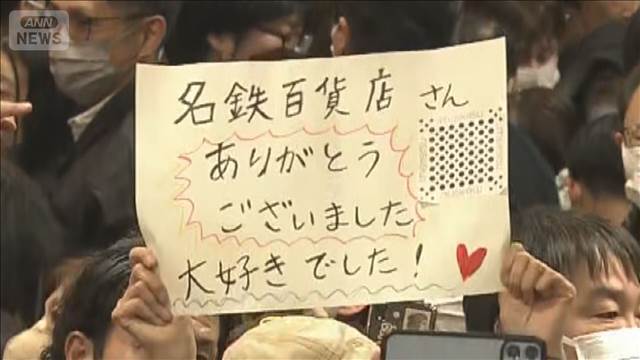 ANN
NEWS
名鉄百貨店さん
ありがとう
ございました
大好きでした!